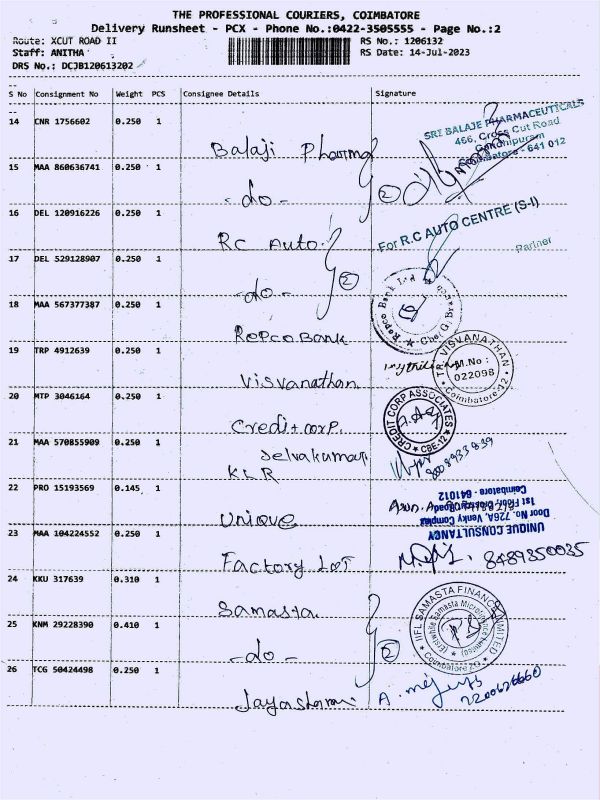 THE PROFESSIONAL COURIERS, COIMBATORE
Delivery Runsheet - PCX - Phone No.:0422-3505555 - Page No.:2
Route: XCUT ROAD II
RS No.: 1206132
Staff: ANITHA
RS Date: 14-Jul-2023
DRS No.: DCJB120613202
S No Consignment No Weight PCS Consignee Details Signature
14 CNR 1756602 0.250 1
SRI BALAJE PHARMACEUTICALS
466, Cross Cut Road
Gandhipuram
Coimbatore - 641 012
Balaji Pharma
15 MAA 860636741 0.250 1
- do - 2
16 DEL 120916226 0.250 1
For R.C AUTO CENTRE (S-I)
Partner
RC Auto
17 DEL 529128907 0.250 1
- do - 2
18 MAA 567377387 0.250 1
Repco Bank
Repco Bank
19 TRP 4912639 0.250 1
TR. VISVANATHAN
M.No :
022098
Coimbatore-12
Visvanathan
20 MTP 3046164 0.250 1
CREDIT CORP ASSOCIATES
CBE-12
Credit corp.
21 MAA 570855909 0.250 1
Selvakumar
KLR
22 PRO 15193569 0.145 1
UNIQUE CONSULTANCY
Door No. 726A, Venky Complex
1st Floor, Cross Cut Road
Coimbatore - 641012
Unique
23 MAA 104224552 0.250 1
Factory Lot 8489350035
24 KKU 317639 0.310 1
Samasta
IIFL SAMASTA FINANCE LIMITED
Coimbatore
25 KNM 29228390 0.410 1
- do - 2
26 TCG 50424498 0.250 1